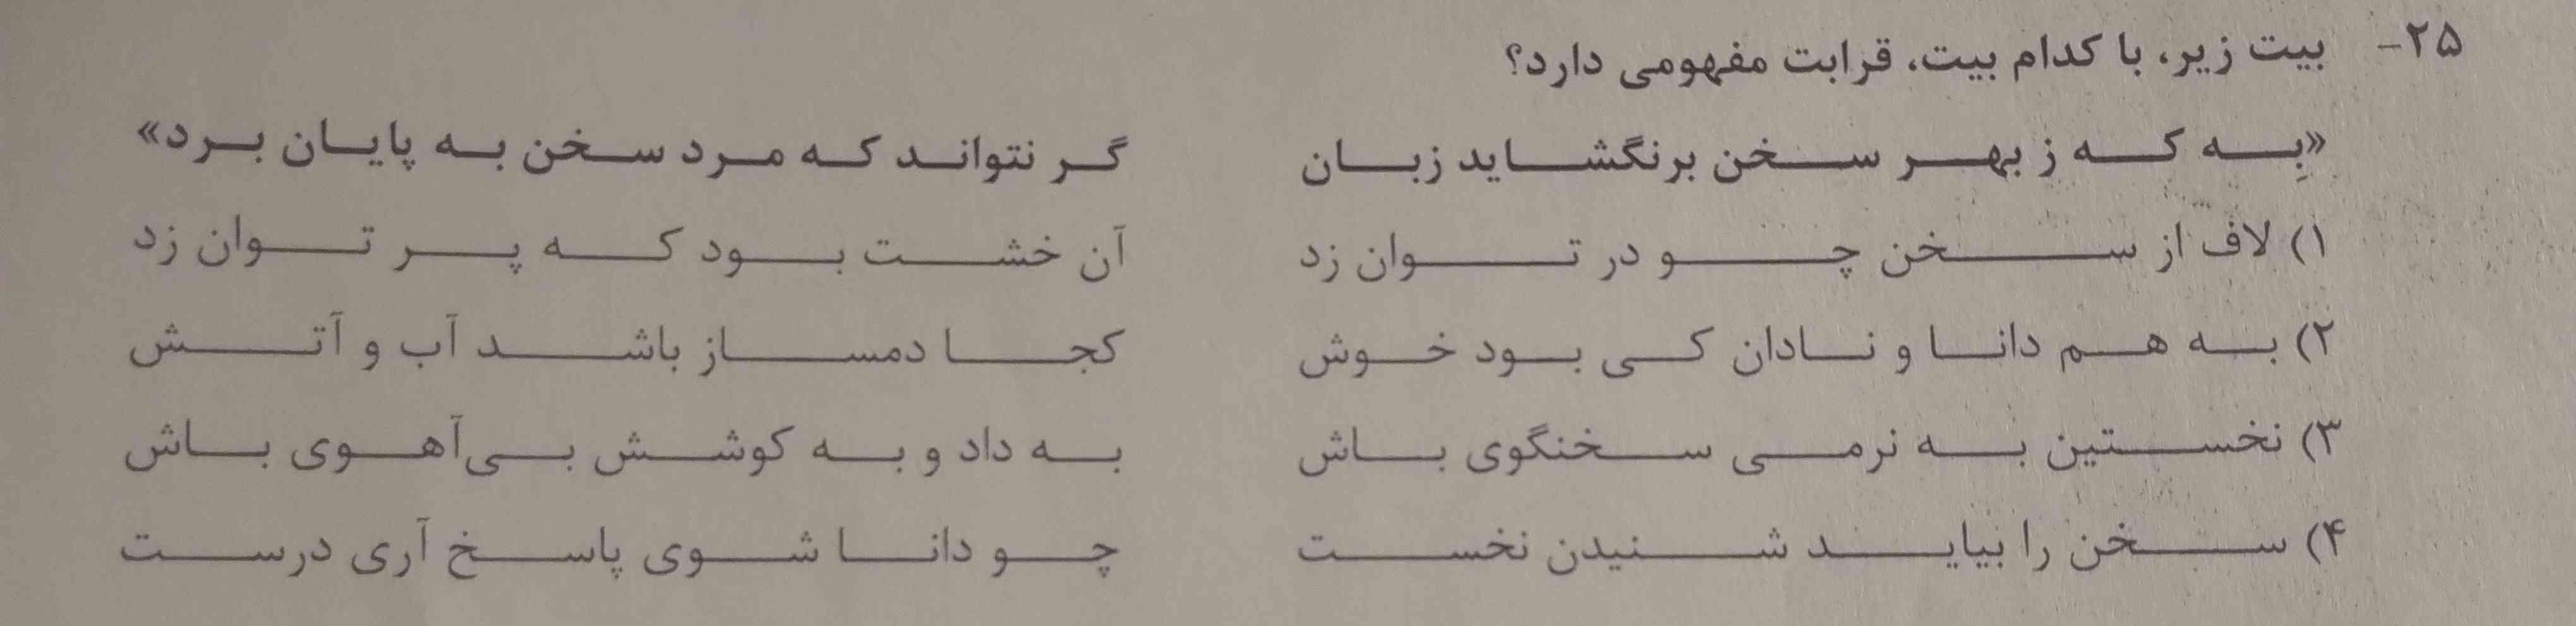 ۲۵- بیت زیر، با کدام بیت، قرابت مفهومی دارد؟
«بِه که ز بهر سخن برنگشاید زبان گر نتواند که مرد سخن به پایان برد»
۱) لاف از سخن چو در توان زد آن خشت بود که پر توان زد
۲) به هم دانا و نادان کی بود خوش کجا دمساز باشد آب و آتش
۳) نخستین به نرمی سخنگوی باش به داد و به کوشش بی‌آهوی باش
۴) سخن را بباید شنیدن نخست چو دانا شوی پاسخ آری درست